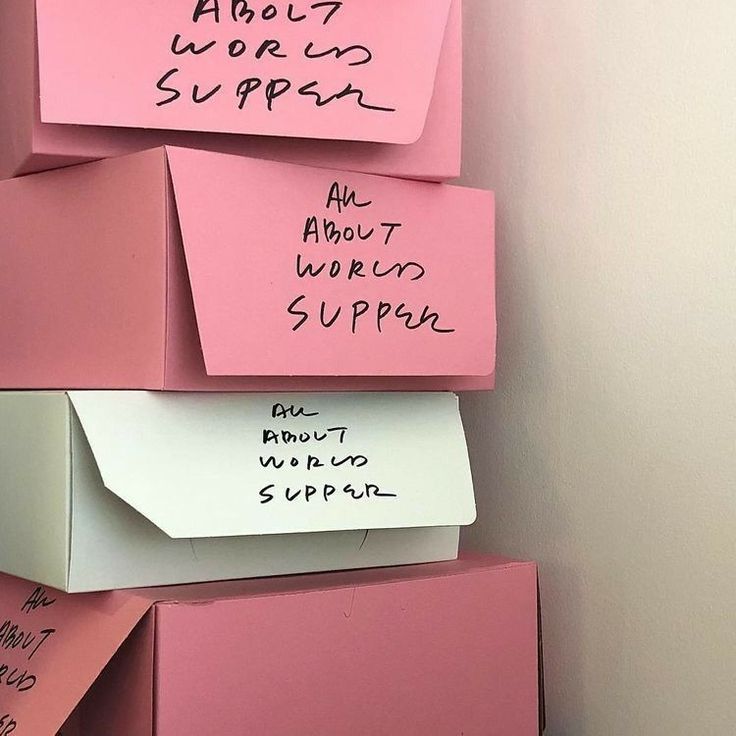 ABOUT
WORLD
SUPPER
All
ABOUT
WORLD
SUPPER
All
ABOUT
WORLD
SUPPER
All
ABOUT